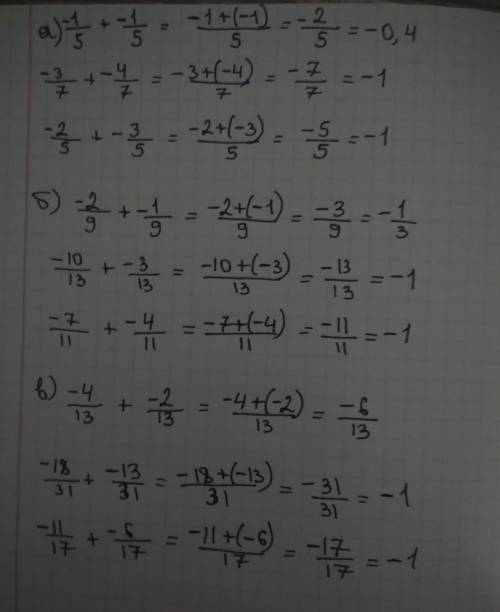 а) -1/5 + -1/5 = -1+(-1)/5 = -2/5 = -0,4
-3/7 + -4/7 = -3+(-4)/7 = -7/7 = -1
-2/5 + -3/5 = -2+(-3)/5 = -5/5 = -1
б) -2/9 + -1/9 = -2+(-1)/9 = -3/9 = -1/3
-10/13 + -3/13 = -10+(-3)/13 = -13/13 = -1
-7/11 + -4/11 = -7+(-4)/11 = -11/11 = -1
в) -4/13 + -2/13 = -4+(-2)/13 = -6/13
-18/31 + -13/31 = -18+(-13)/31 = -31/31 = -1
-11/17 + -6/17 = -11+(-6)/17 = -17/17 = -1